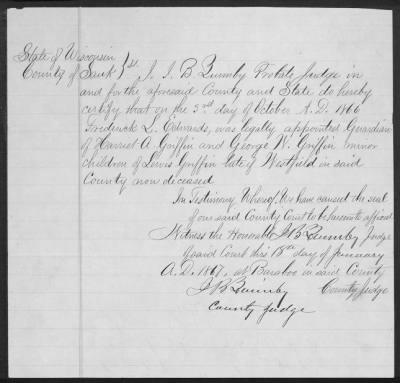 State of Wisconsin
County of Sauk } ss. I J. B Quimby Probate Judge in
and for the aforesaid County and State do hereby
certify that on the 3rd day of October A.D. 1866
Frederick L. Edwards, was legally appointed Guardian
of Harriet A. Griffin and George W. Griffin minor
children of Lewis Griffin late of Westfield in said
County now deceased
In Testimony Whereof, We have caused the seal
of our said County Court to be hereunto affixed
Witness the Honorable J B Quimby Judge
of said Court this 18th day of January
A.D. 1867, at Baraboo in said County
J B Quimby County Judge
County Judge